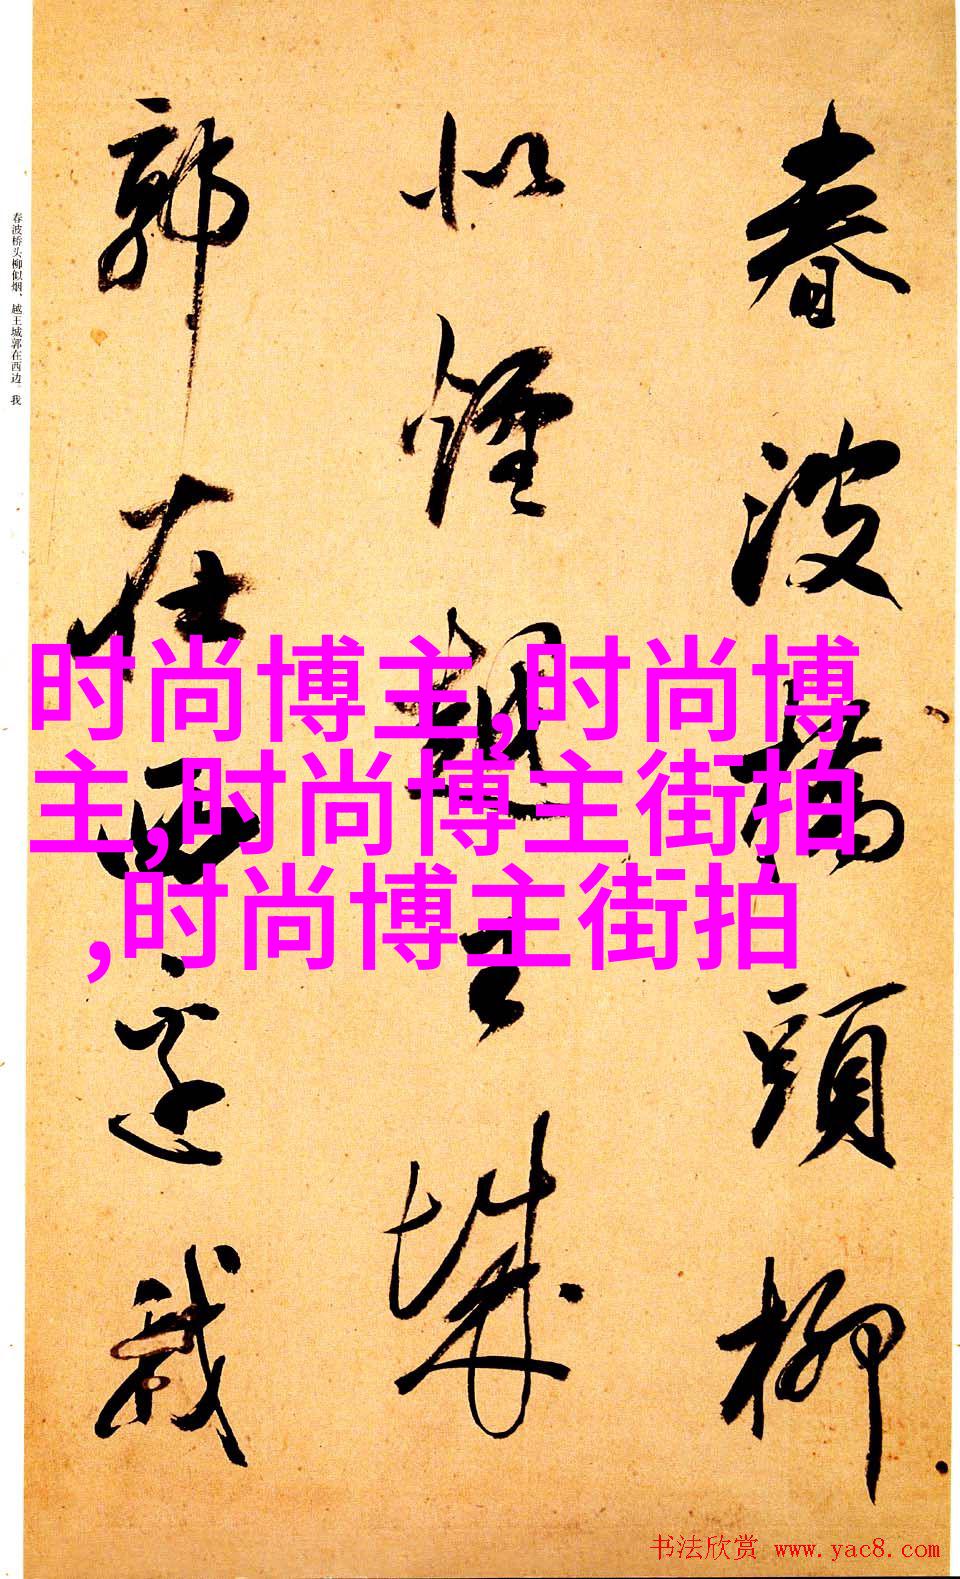 春波橋頭柳
似煙越王城
郭在西邊我
春波桥头柳似烟、越王城郭在西边。我
时尚博主,时尚博
主,时尚博主街拍
,时尚博主街拍
书法欣赏 www.yac8.com